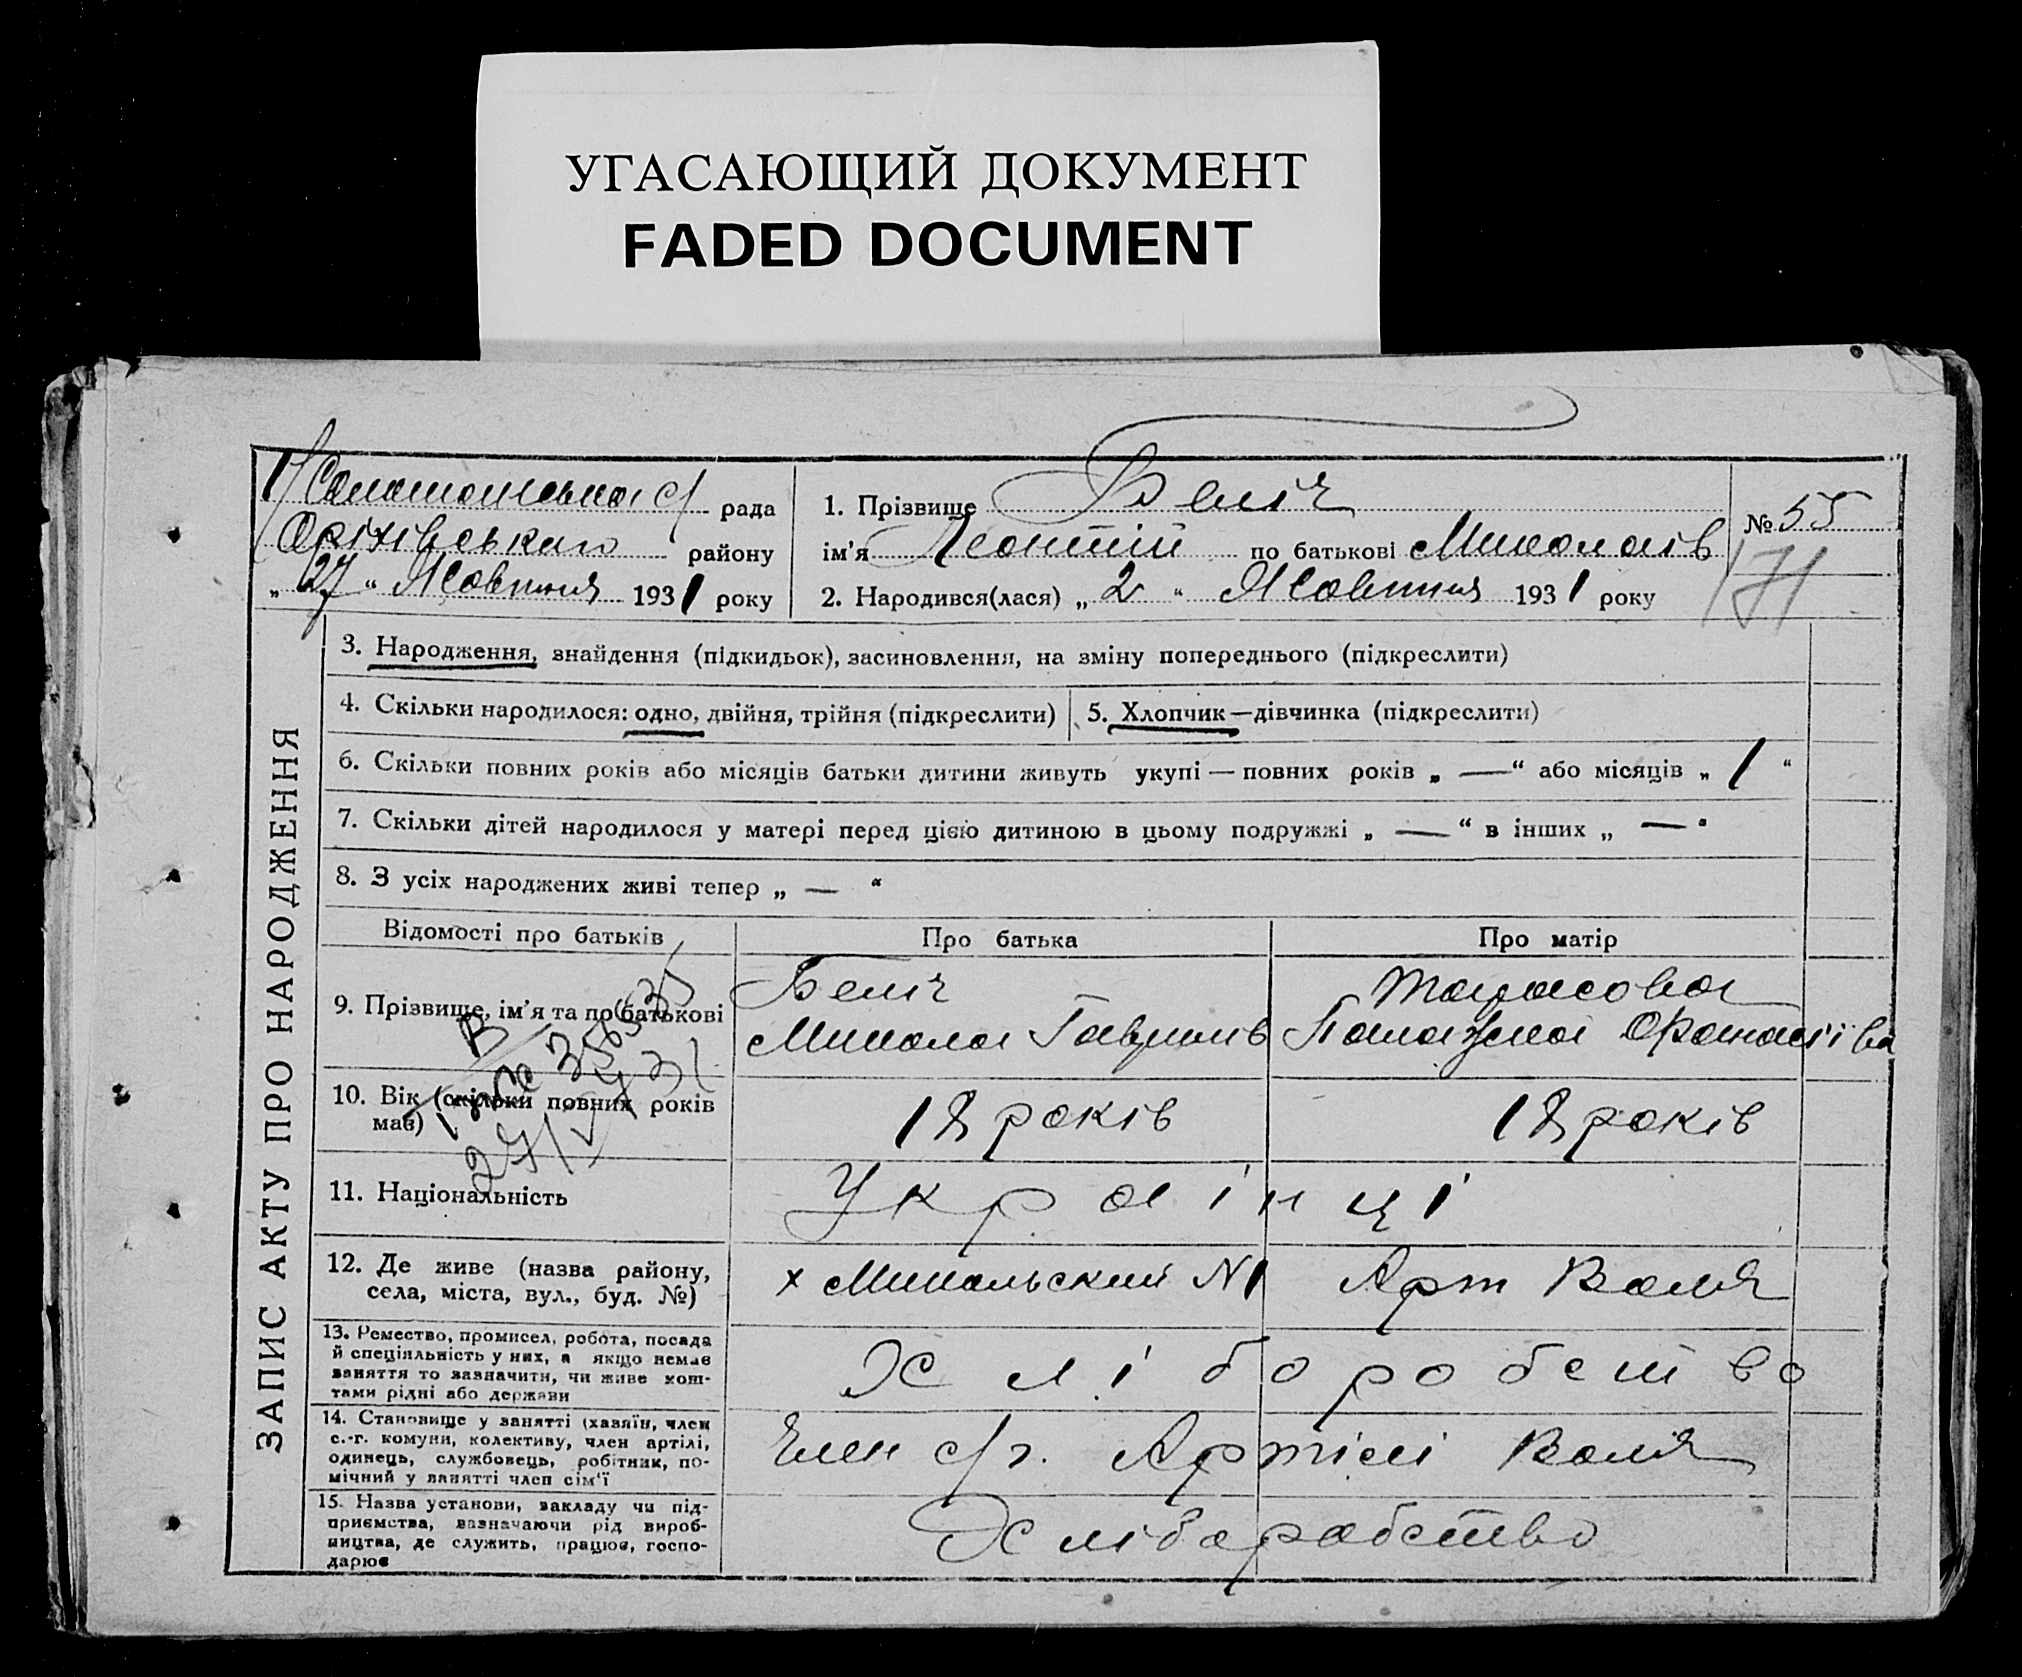 УГАСАЮЩИЙ ДОКУМЕНТ
FADED DOCUMENT
с/ рада
Оріхівського району
„27“ Жовтня 1931 року
1. Прізвище Беліч
ім'я Леонтій по батькові Миколаїв
2. Народився(лася) „2“ Жовтня 1931 року
№ 55
171
ЗАПИС АКТУ ПРО НАРОДЖЕННЯ
3. Народження, знайдення (підкидьок), засиновлення, на зміну попереднього (підкреслити)
4. Скільки народилося: одно, двійня, трійня (підкреслити)
5. Хлопчик—дівчинка (підкреслити)
6. Скільки повних років або місяців батьки дитини живуть укупі — повних років „ — “ або місяців „ 1 “
7. Скільки дітей народилося у матері перед цією дитиною в цьому подружжі „ — “ в інших „ — “
8. З усіх народжених живі тепер „ — “
Відомості про батьків
Про батька
Про матір
9. Прізвище, ім'я та по батькові
Беліч
Микола Гаврилів
Тарасова
Палажка
10. Вік (скільки повних років
має)
18 років
18 років
11. Національність
Українці
12. Де живе (назва району,
села, міста, вул., буд. №)
х Микольский N1 Арт Воля
13. Ремество, промисел, робота, посада
й спеціяльність у них, а якщо немає
заняття то зазначити, чи живе кош-
тами рідні або держави
Хліборобство
14. Становище у занятті (хазяїн, член
с.-г. комуни, колективу, член артілі,
одинець, службовець, робітник, по-
мічний у занятті член сім'ї
Член с/г. Артілі Воля
15. Назва установи, закладу чи під-
приємства, вазначаючи рід вироб-
ництва, де служить, працює, госпо-
дарює
Хліборобство